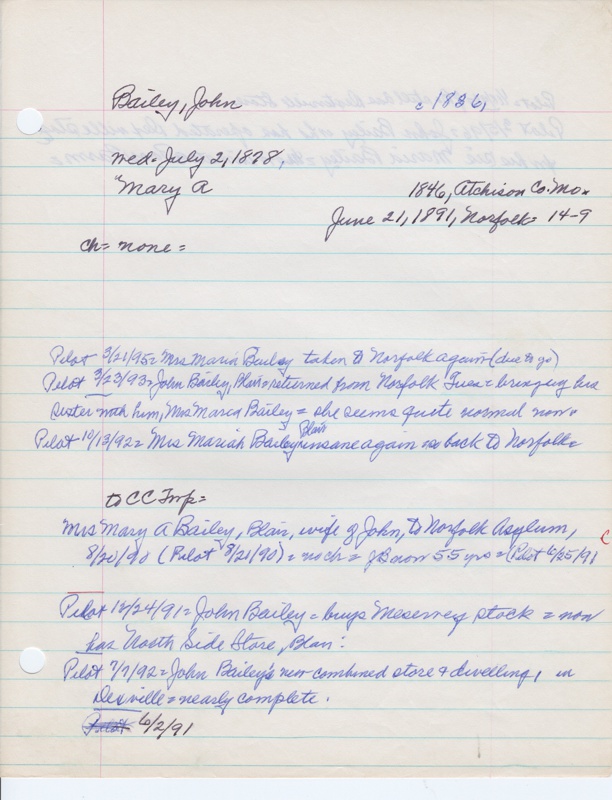 Bailey, John c 1836,
med= July 2, 1878,
Mary A 1846, Atchison Co. Mo.
June 21, 1891, Norfolk= 14-9
ch= none=
Pilot 3/21/95= Mrs Maria Bailey taken to Norfolk again (due to go)
Pilot 3/23/93= John Bailey, Blair= returned from Norfolk Tues= bringing his
sister with him, Mrs Maria Bailey = she seems quite normal now.
Pilot 10/13/92= Mrs Mariah Bailey, Blair insane again = back to Norfolk=
to CC Twp=
Mrs Mary A Bailey, Blair, wife of John, to Norfolk Asylum,
8/20/90 (Pilot 8/21/90) = no ch = 55 yrs = (Pilot 6/25/91
Pilot 12/24/91= John Bailey= buys Meservey stock = now
has North Side Store, Blair.
Pilot 7/7/92= John Bailey's new combined store & dwelling, in
Dexville= nearly complete.
Pilot 6/2/91